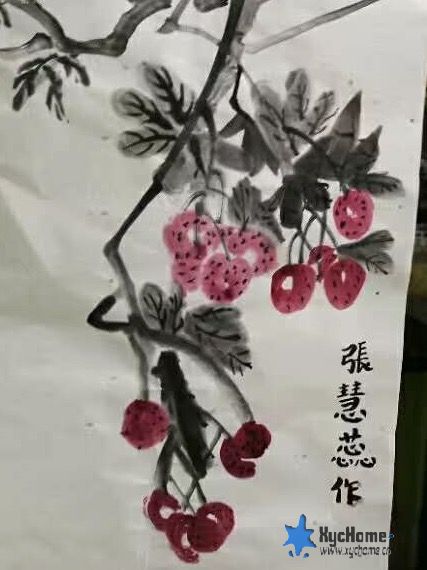 張慧蕊作
XycHome
www.xychome.co